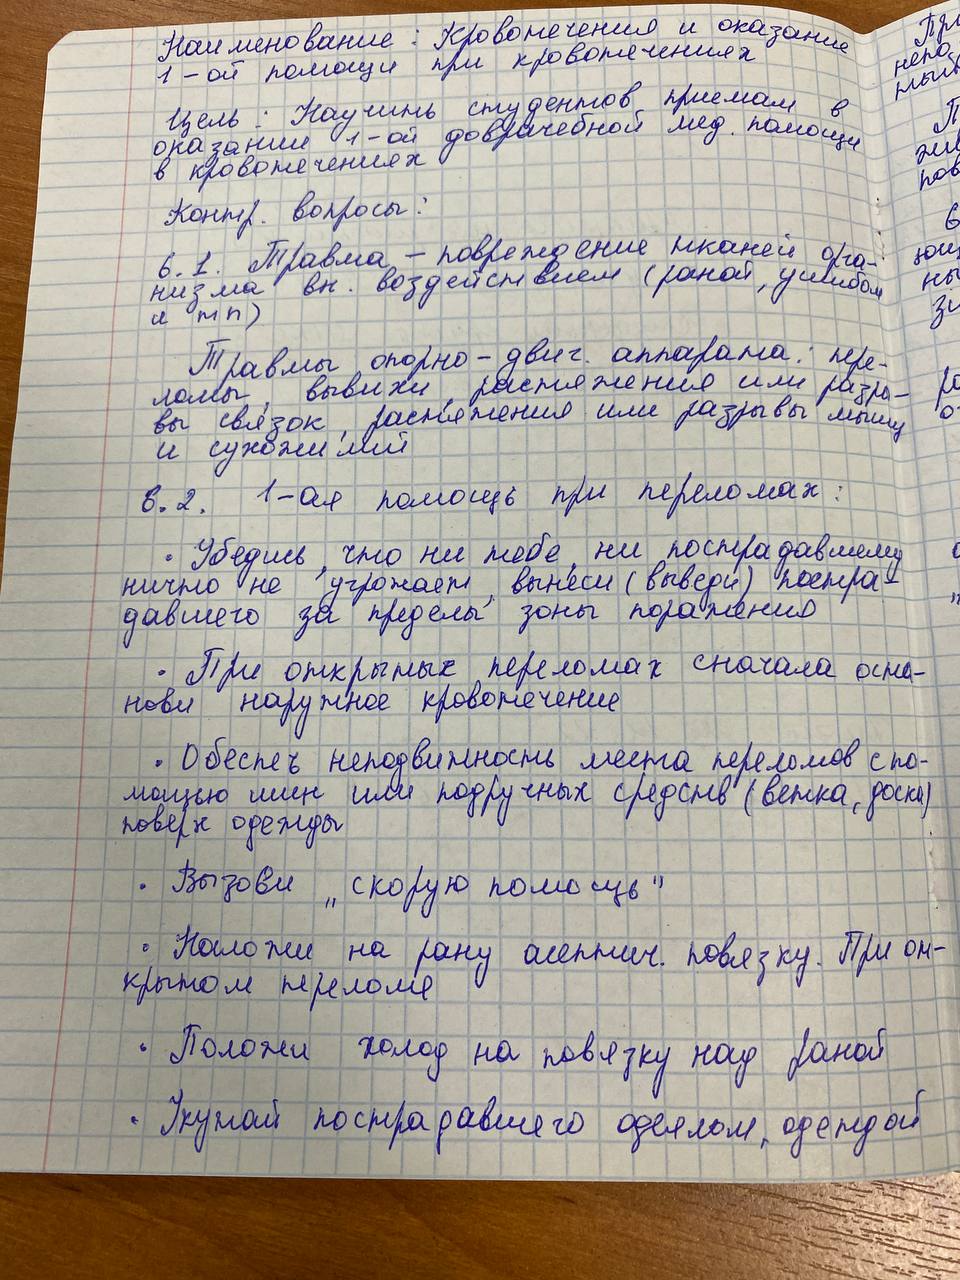 Наименование: Кровотечения и оказание
1-ой помощи при кровотечениях
Цель: Научить студентов приемам в
оказании 1-ой доврачебной мед. помощи
в кровотечениях
Контр. вопросы:
в.1. Травма – повреждение тканей орга-
низма вн. воздействием (раной, ушибом
и тп)
Травмы опорно-двиг. аппарата: пере-
ломы, вывихи, растяжения или разры-
вы связок, растяжения или разрывы мышц
и сухожилий
в.2. 1-ая помощь при переломах:
· Убедись, что ни тебе, ни пострадавшему
ничто не угрожает, вынеси (выведи) постра-
давшего за пределы зоны поражения
· При открытых переломах сначала оста-
нови наружное кровотечение
· Обеспеч неподвижность места переломов с по-
мощью шин или подручных средств (ветка, доска)
поверх одежды
· Вызови „скорую помощь"
· Наложи на рану асептич. повязку. При от-
крытом переломе
· Положи холод на повязку над раной
· Укутай пострадавшего одеялом, одеждой